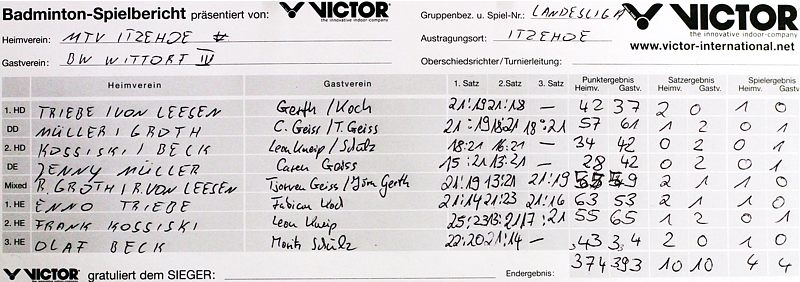 Badminton-Spielbericht präsentiert von: VICTOR the innovative indoor-company Gruppenbez. u. Spiel-Nr.: LANDESLIGA VICTOR the innovative indoor-company
Heimverein: MTV ITZEHOE Austragungsort: ITZEHOE www.victor-international.net
Gastverein: BW WITTORF IV Oberschiedsrichter/Turnierleitung:
Heimverein Gastverein 1. Satz 2. Satz 3. Satz Punktergebnis Heimv. Gastv. Satzergebnis Heimv. Gastv. Spielergebnis Heimv. Gastv.
1. HD TRIEBE / VON LEESEN Gerth / Koch 21:19 21:18 — 42 37 2 0 1 0
DD MÜLLER / GROTH C. Geiss / T. Geiss 21:19 18:21 18:21 57 61 1 2 0 1
2. HD KOSSISKI / BECK Leon Kneip / Schülz 18:21 16:21 — 34 42 0 2 0 1
DE JENNY MÜLLER Caren Geiss 15:21 13:21 — 28 42 0 2 0 1
Mixed R. GROTH / R. VON LEESEN Tjorven Geiss / Jörn Gerth 21:19 13:21 21:19 2 1 1 0
1. HE ENNO TRIEBE Fabian Koch 21:14 21:23 21:16 63 53 2 1 1 0
2. HE FRANK KOSSISKI Leon Kneip 25:23 13:21 17:21 55 65 1 2 0 1
3. HE OLAF BECK Moritz Schülz 22:20 21:14 — 43 34 2 0 1 0
VICTOR gratuliert dem SIEGER: Endergebnis: 374 393 10 10 4 4